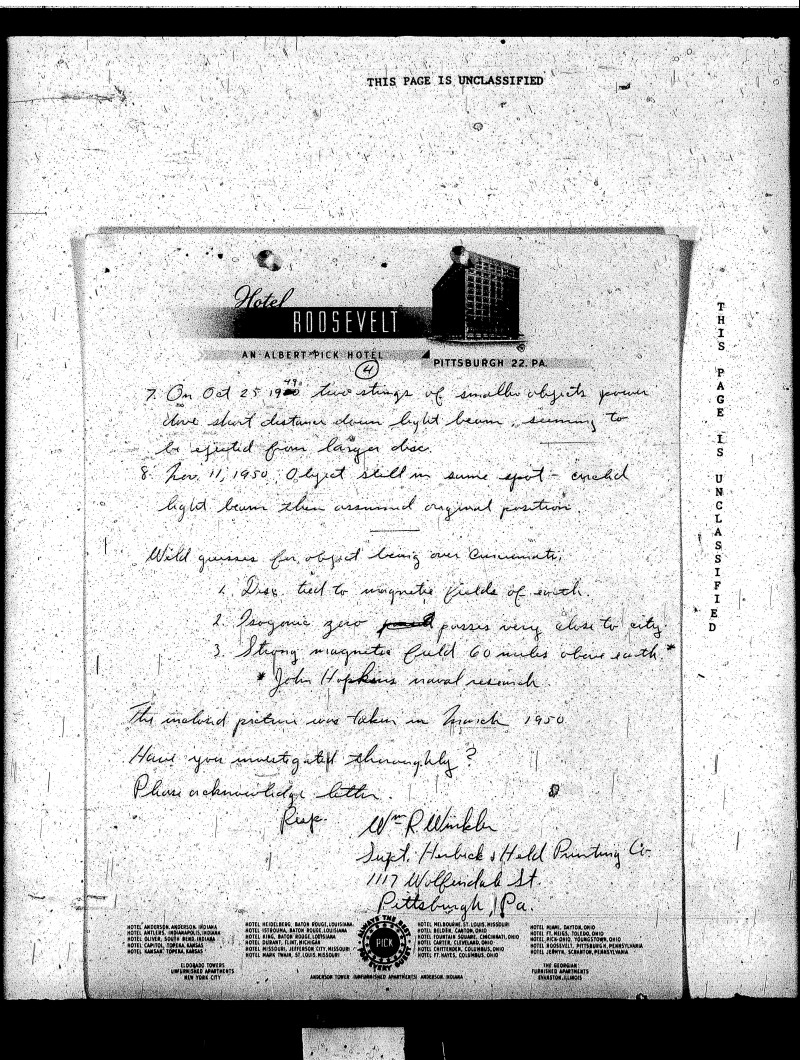 THIS PAGE IS UNCLASSIFIED
Hotel
ROOSEVELT
AN ALBERT PICK HOTEL
PITTSBURGH 22. PA.
4
7. On Oct 25 1949 two strings of smaller objects power
dove short distance down light beam, seeming to
be ejected from larger disc.
8. Nov. 11, 1950 Object still in same spot - circled
light beam then assumed original position.
Wild guesses for object being over Cincinnati:
1. Disc tied to magnetic fields of earth.
2. Isogonic zero passes very close to city
3. Strong magnetic field 60 miles above earth.*
* John Hopkins naval research
The inclosed picture was taken in March 1950
Have you investigated thoroughly?
Please acknowledge letter.
Resp.
Wm R. Winkler
Supt. Herbick & Held Printing Co.
1117 Wolfendale St.
Pittsburgh, Pa.
HOTEL ANDERSON, ANDERSON, INDIANA
HOTEL ANTLERS, INDIANAPOLIS, INDIANA
HOTEL OLIVER, SOUTH BEND, INDIANA
HOTEL CAPITOL, TOPEKA, KANSAS
HOTEL KANSAN, TOPEKA, KANSAS
HOTEL HEIDELBERG, BATON ROUGE, LOUISIANA
HOTEL ISTROUMA, BATON ROUGE, LOUISIANA
HOTEL KING, BATON ROUGE, LOUISIANA
HOTEL DURANT, FLINT, MICHIGAN
HOTEL MISSOURI, JEFFERSON CITY, MISSOURI
HOTEL MARK TWAIN, ST. LOUIS, MISSOURI
ALWAYS THE BEST
PICK
HOTEL MELBOURNE, ST. LOUIS, MISSOURI
HOTEL BELDEN, CANTON, OHIO
HOTEL FOUNTAIN SQUARE, CINCINNATI, OHIO
HOTEL CARTER, CLEVELAND, OHIO
HOTEL CHITTENDEN, COLUMBUS, OHIO
HOTEL FT. HAYES, COLUMBUS, OHIO
HOTEL MIAMI, DAYTON, OHIO
HOTEL FT. MEIGS, TOLEDO, OHIO
HOTEL RICH-OHIO, YOUNGSTOWN, OHIO
HOTEL ROOSEVELT, PITTSBURGH, PENNSYLVANIA
HOTEL JERMYN, SCRANTON, PENNSYLVANIA
ELDORADO TOWERS
UNFURNISHED APARTMENTS
NEW YORK CITY
ANDERSON TOWER (UNFURNISHED APARTMENTS) ANDERSON, INDIANA
THE GEORGIAN
FURNISHED APARTMENTS
EVANSTON, ILLINOIS
THIS PAGE IS UNCLASSIFIED